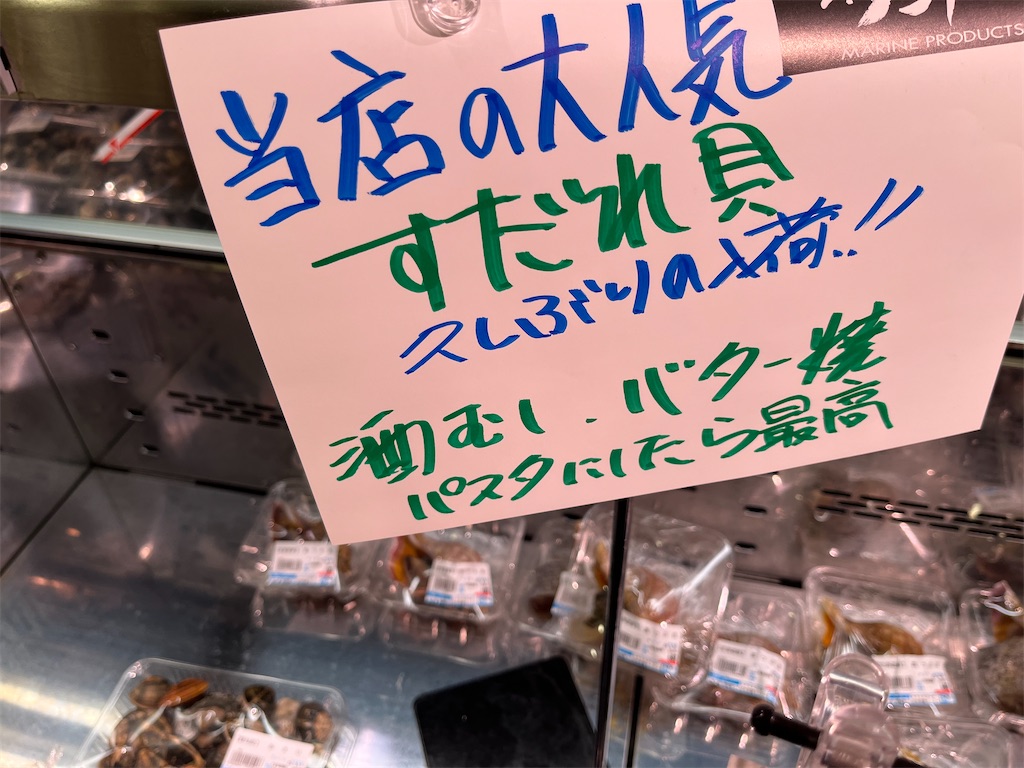 MARINE PRODUCTS
当店の大人気
すだれ貝
久しぶりの入荷!!
酒むし.バター焼
パスタにしたら最高